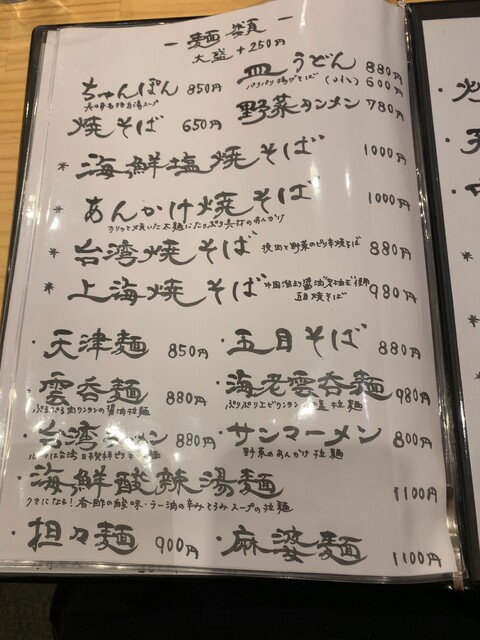 ー 麺類 ー
大盛 +250円
ちゃんぽん 850円
皿うどん 880円
パリパリ揚げそば (小) 600円
焼そば 650円
野菜タンメン 780円
* 海鮮塩焼そば 1000円
* あんかけ焼そば 1000円
カリッと焼いた太麺にたっぷり具材のあんかけ
* 台湾焼そば 挽肉と野菜のピリ辛焼そば 880円
* 上海焼そば 中国溜り醤油"老油王"使用 980円
五目焼そば
・天津麺 850円
・五目そば 880円
・雲呑麺 880円
ぷるぷる肉ワンタンの醤油拉麺
・海老雲呑麺 980円
ぷりぷりエビワンタンの 拉麺
・台湾ラーメン 880円
・サンマーメン 800円
野菜のあんかけ拉麺
・海鮮酸辣湯麺 1100円
クセになる!香酢の酸味・ラー油の辛みとろみスープの拉麺
・担々麺 900円
・麻婆麺 1100円